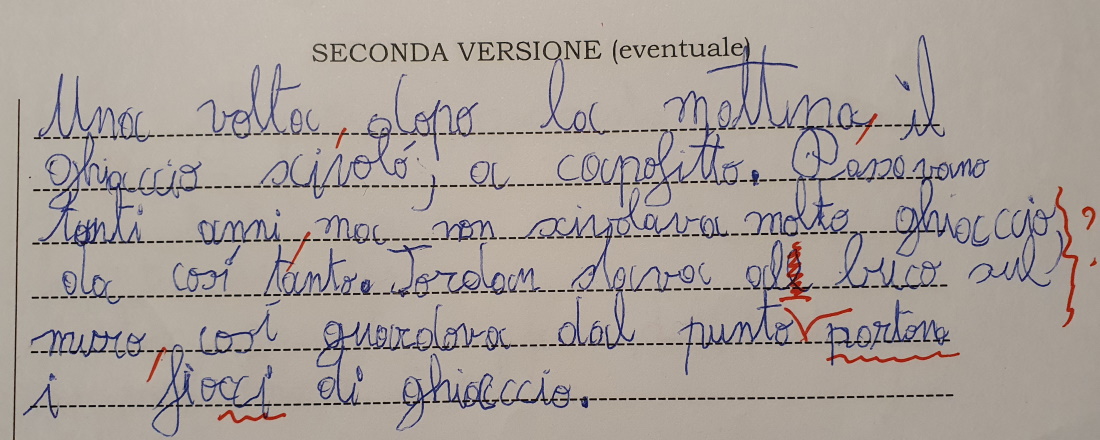 SECONDA VERSIONE (eventuale)
Una volta, dopo la mattina, il
ghiaccio scivoló, a capofitto. Passavano
tanti anni, ma non scivolava molto ghiaccio, ?
da cosí tanto. Jordan stava al buco sul
muro, cosí guardava dal punto partona
i fiocci di ghiaccio.